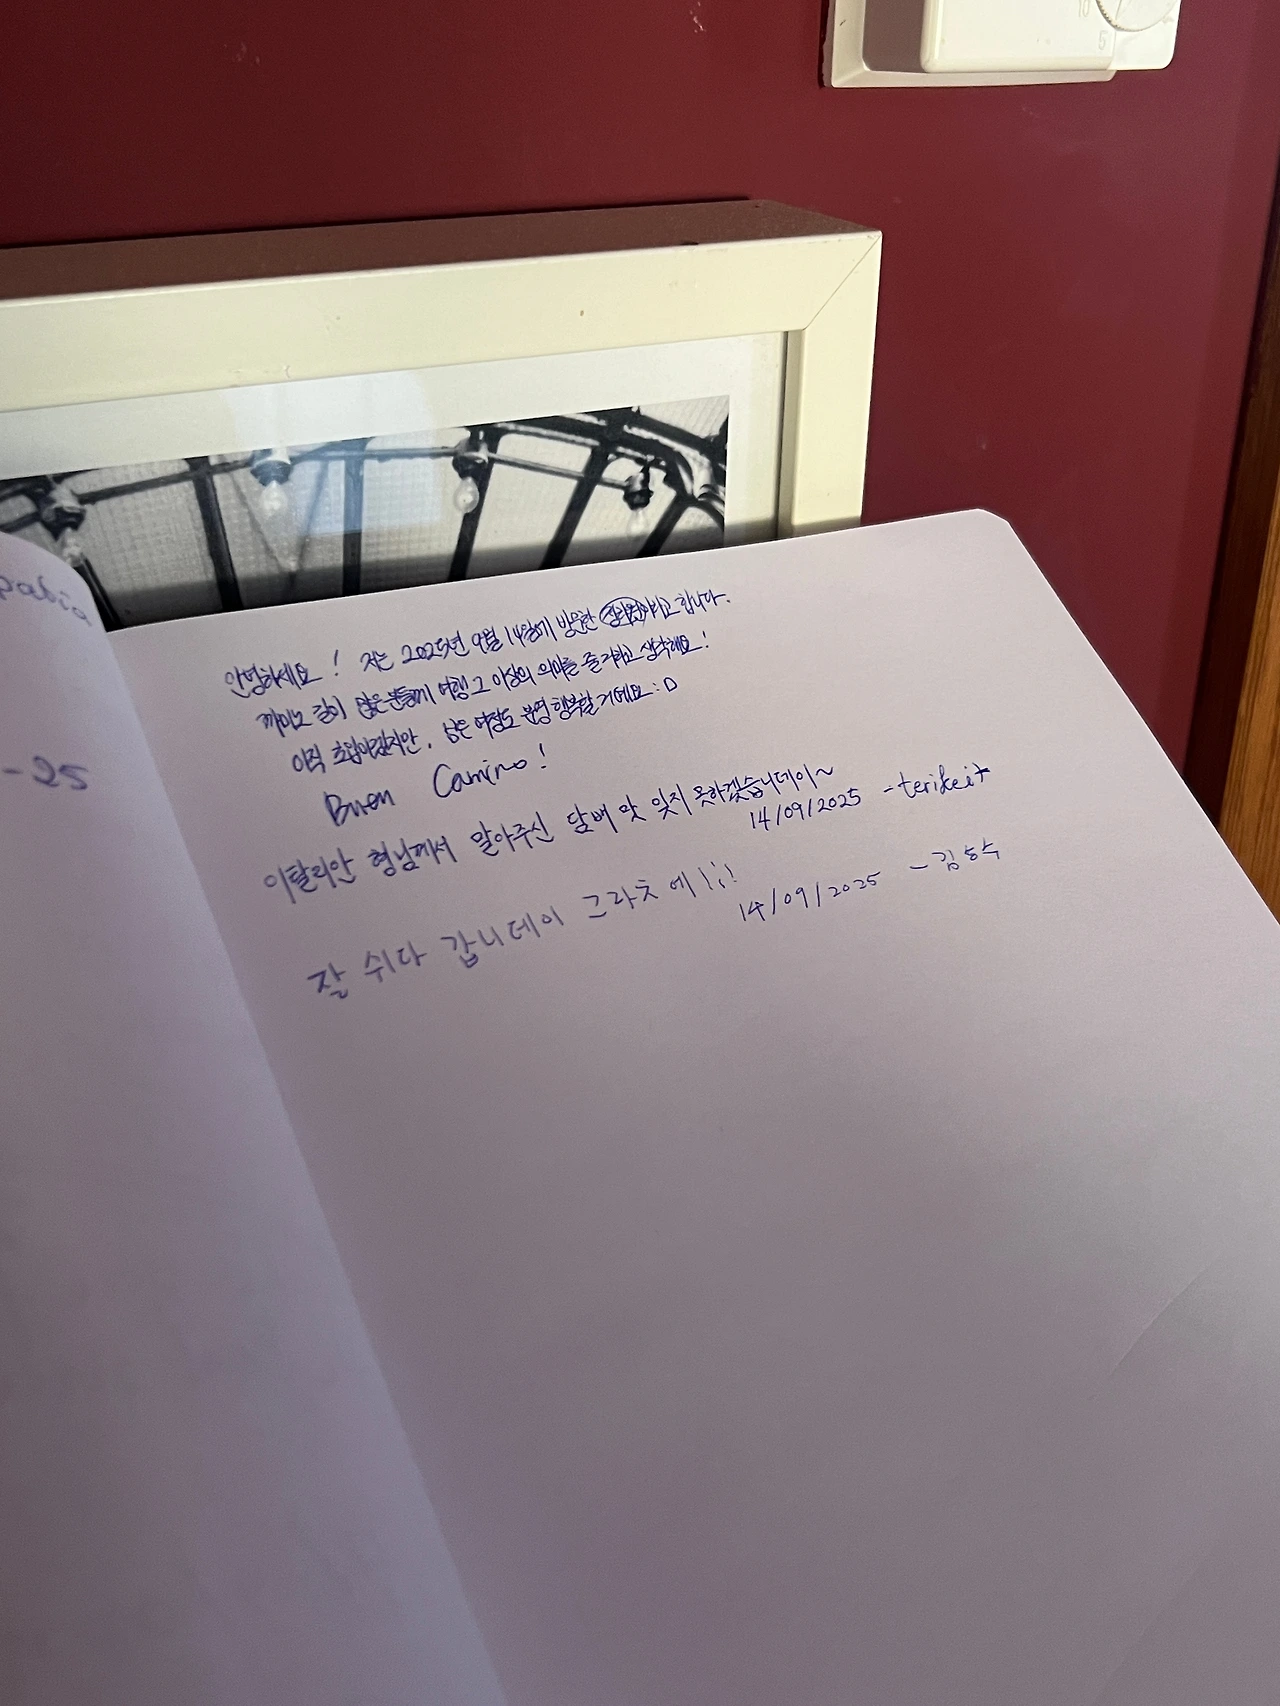 pabia
-25
안녕하세요! 저는 2025년 9월 14일에 방문한 이라고 합니다.
까미노 길이 많은 분들께 여행 그 이상의 의미를 줄 거라고 생각해요!
아직 초입이겠지만, 남은 여정도 분명 행복할 거예요 :D
Buen Camino!
이탈리안 형님께서 말아주신 담배 맛 잊지 못하겠습니데이~
14/09/2025 -terikeit
잘 쉬다 갑니데이 그라치에!¡!
14/09/2025 -김호수
10
5